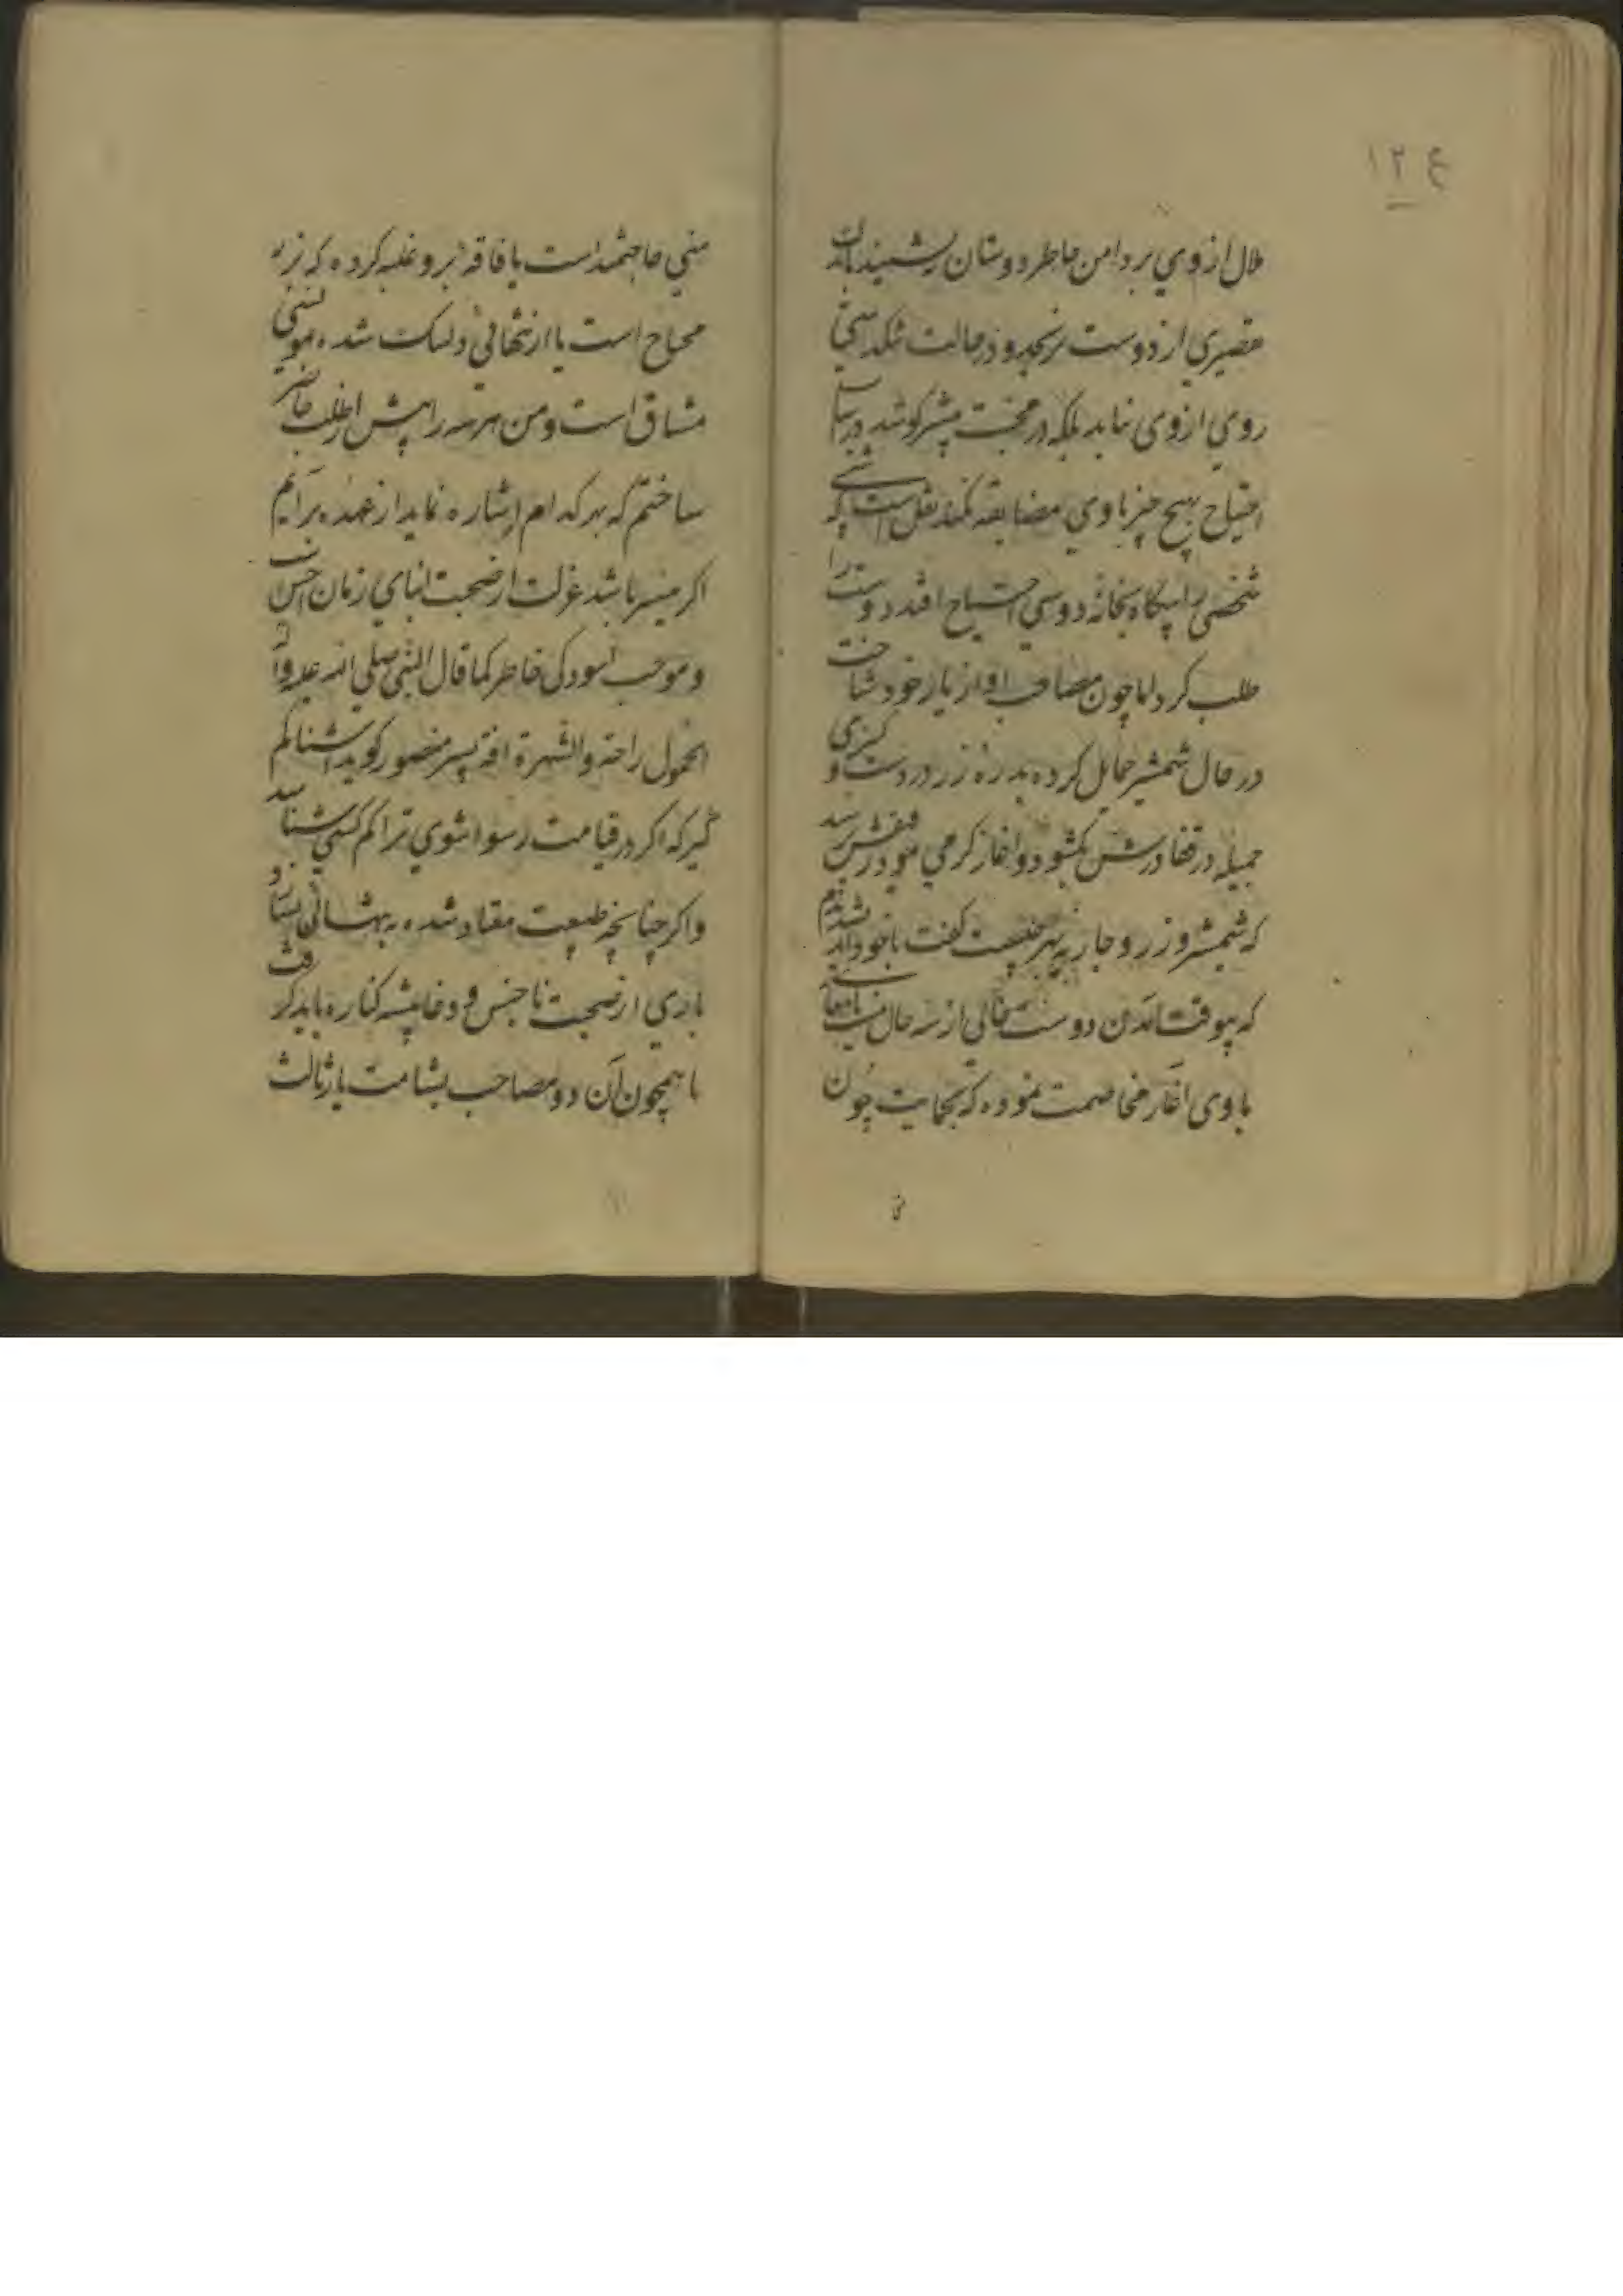 ع ۱۲
ملال از وي بر دامن خاطر دوستان ننشیند باندک
تقصیری از دوست نرنجد و در حالت تنکدستی
روي از وی نتابد بلکه در محبت بیشتر کوشد و در
احتیاج بهیچ چیز با وي مضایقه نکند نقل است که
شخصی را بیکاه بخانه دوستی احتیاج افتد دوست را
طلب کرد اما چون مصاحب اواز یار خود شناخت
در حال شمشیر حمایل کرده بدره زر در دست و کنیزی
جمیله در قفا درش بکشود و اغاز کرمي نمود رفیقش
که شمشیر و زر و جاریه بهر چیست کفت با خود
که بیوقت آمدن دوست خالی از سه حال نیست یا
با وی آغاز مخاصمت نموده که بحمایت چون
منی حاجتمند است یا فاقه برو غلبه کرده که بزر
محتاج است یا از تنهائی دلتنک شده بمونسی
مشتاق است و من هر سه را پیش از طلب حاضر
ساختم که بهر کدام اشاره نماید از عهده برآیم
اکر میسر باشد عزلت از صحبت ابنای زمان احسن
و موجب اسودکی خاطر کما قال النبی صلی الله علیه و آله
الخمول راحة والشهرة افة پسر منصور کوید اشنا کم
گیر که اکر در قیامت رسوا شوي ترا کم کسی شناسد
و اکر چنانچه طبیعت معتاد شده به
باری از صحبت ناجنس و دغاپیشه کناره باید کرد
تا همچون آن دو مصاحب بشامت یار ثالث